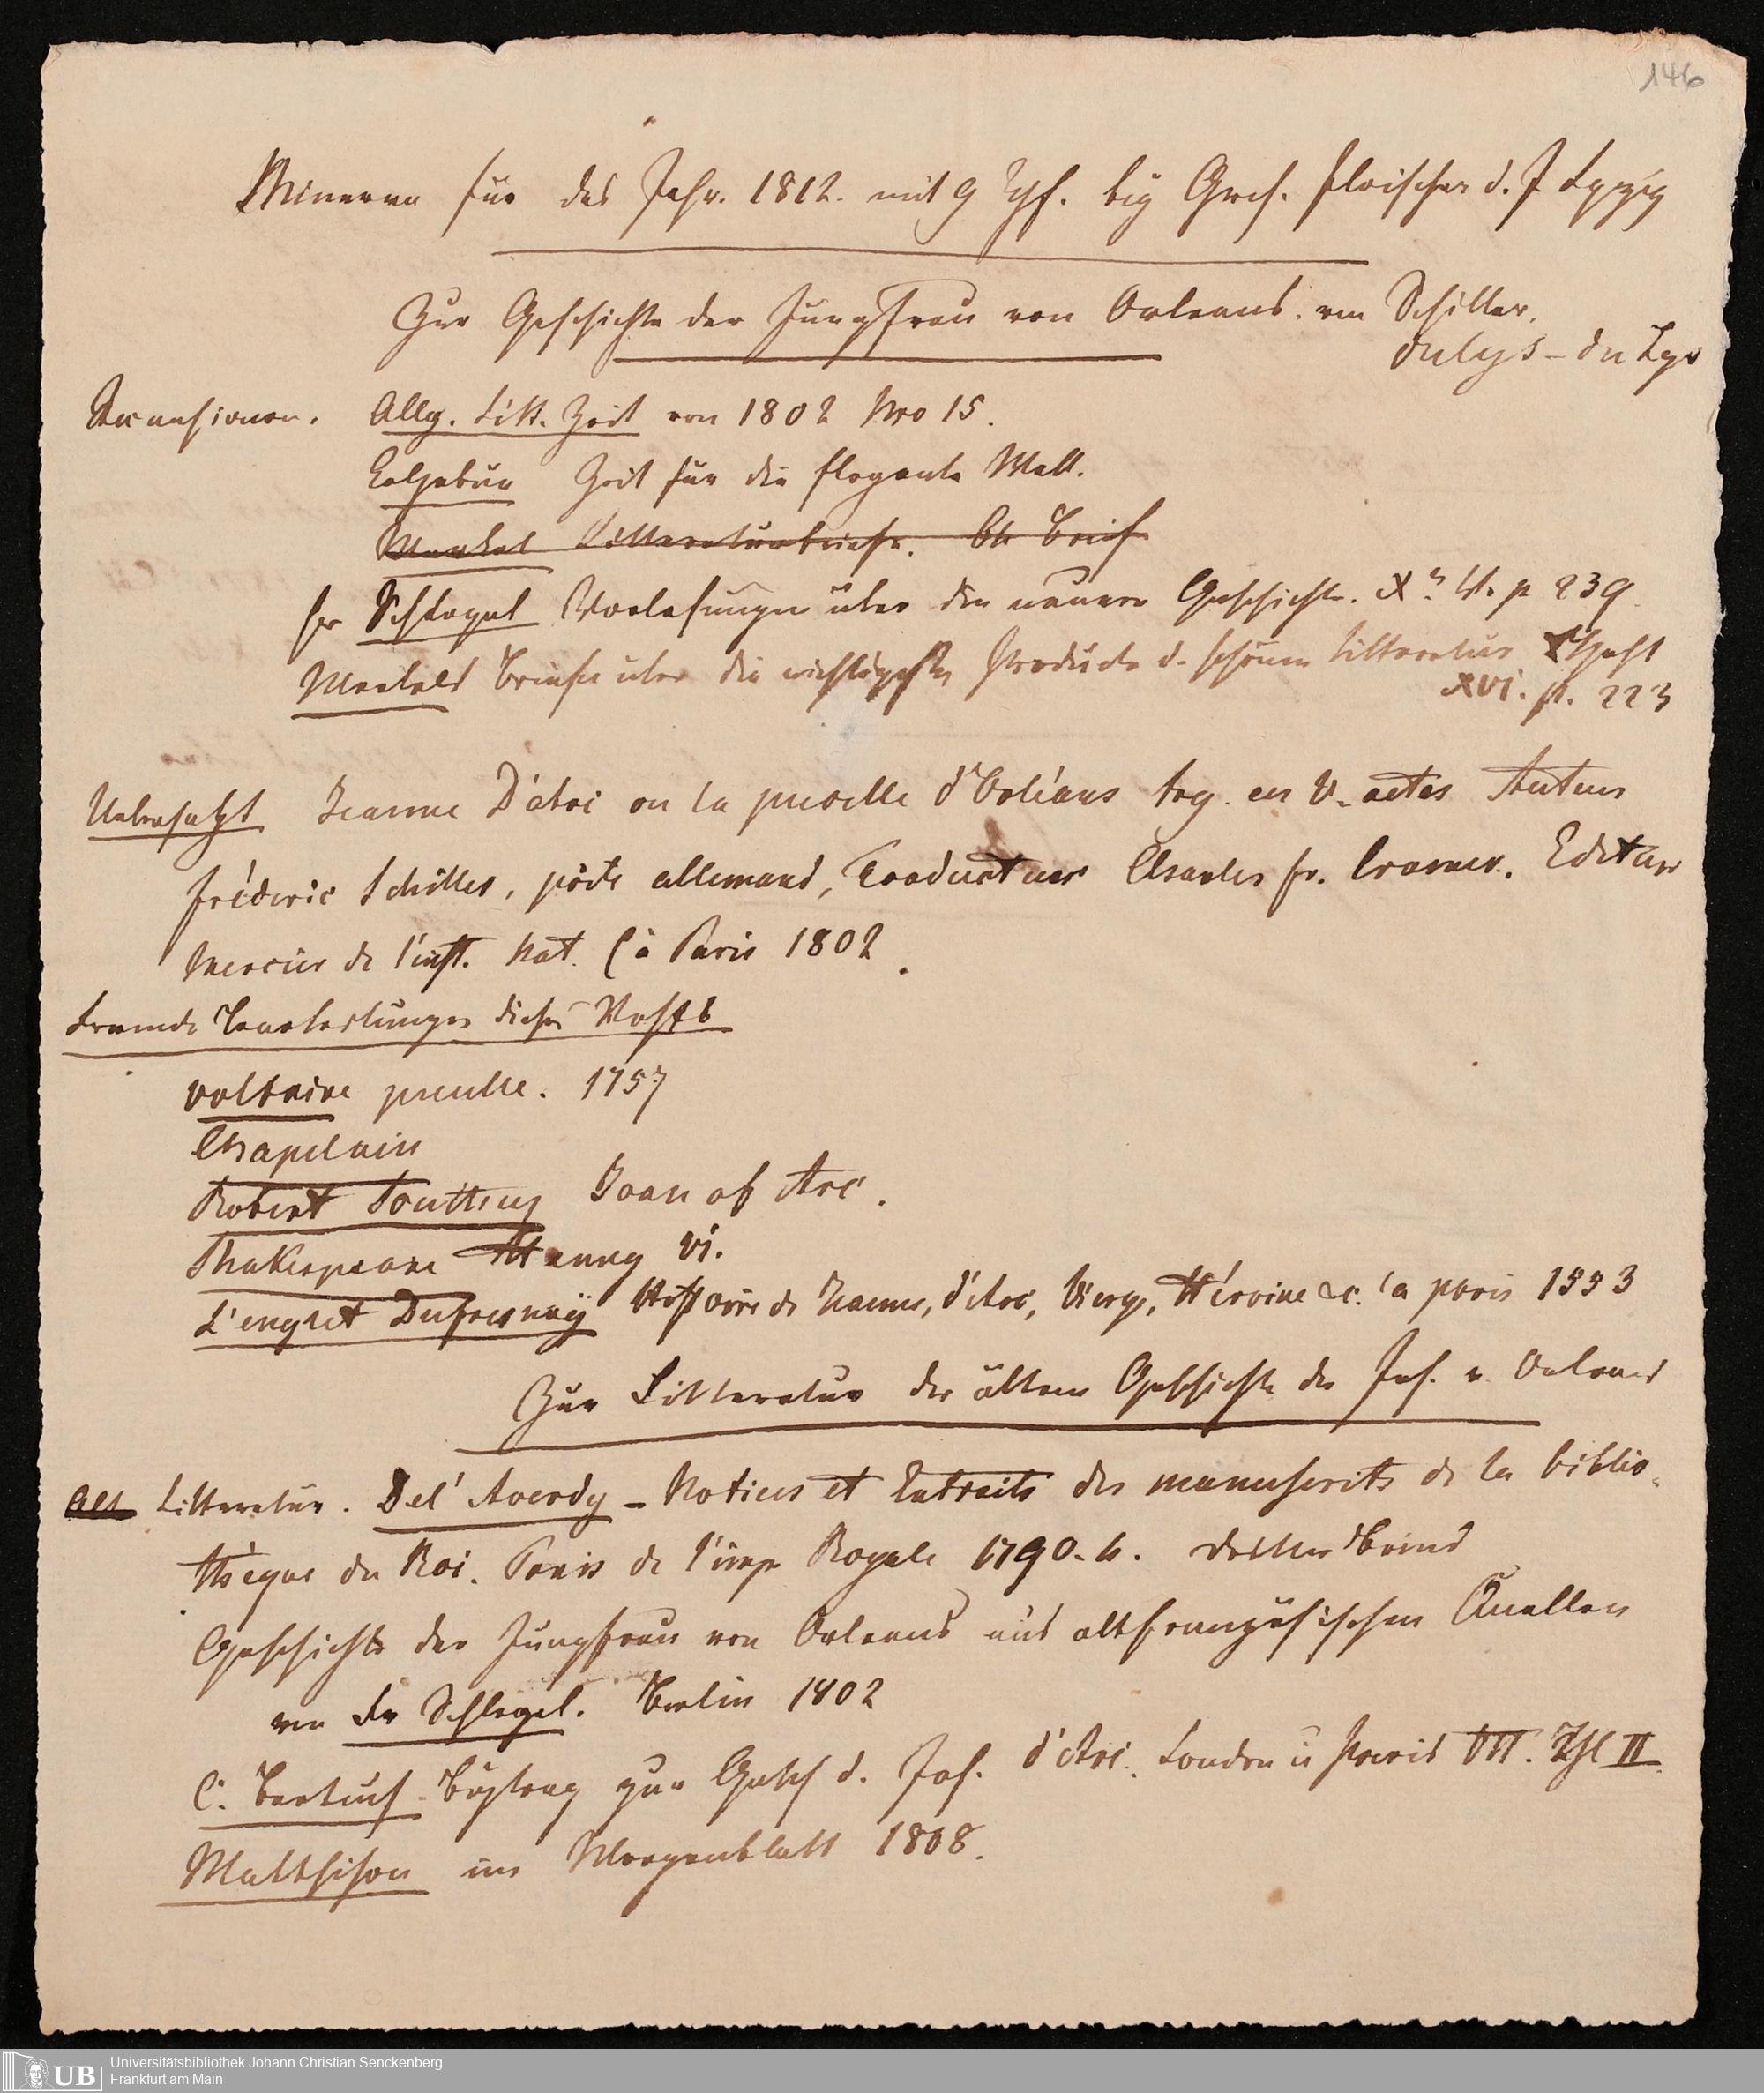 146
Minerva für das Jahr. 1812. mit 9 Kpf. bey Gerh. Fleischer d. J Lpzg
Zur Geschichte der Jungfrau von Orleans. von Schiller.
dulys – du Lys
Recensionen. Allg. Litt. Zeit von 1802 Nro 15.
Zeit für die elegante Welt.
Merkel Litteraturbriefe. Brief
fr Schlegel Vorlesungen über die neuere Geschichte. p 239
Merkels Briefe über die wichtigsten Producte d. schönen Litteratur Heft
XVI. p. 223
Uebersetzt Jeanne D'arc ou la pucelle d'Orléans trag. en V. actes Auteur
fréderic Schiller, poëte allemand, Traducteur Charles fr. Cramer. Editeur
Mercier de l'inst. Nat. (à Paris 1802.
Fremde Bearbeitungen dieses Stoffs
Voltaire pucelle. 1757
Chapelain
Robert Southey Joan of Arc.
Shakespeare Henry VI.
L'englet Dufresnoÿ Histoire de Jeanne, d'Arc, Vierge, Héroine &c. (a paris 1553
Zur Litteratur der ältern Geschichte der Jgf. v. Orleans
Alt Litteratur. Del' Averdy – Notices et Extraits des manuscrits de la biblio-
thèque du Roi. Paris de l'imp Royale 1790. 4. dritter Band
Geschichte der Jungfrau von Orleans aus altfranzösischen Quellen
von Fr Schlegel. Berlin 1802
C. Bertuch Beytrag zur Gesch d. Jgf. d'Arc. London u Paris VII. Thl III.
Matthison im Morgenblatt 1808.
UB Universitätsbibliothek Johann Christian Senckenberg
Frankfurt am Main